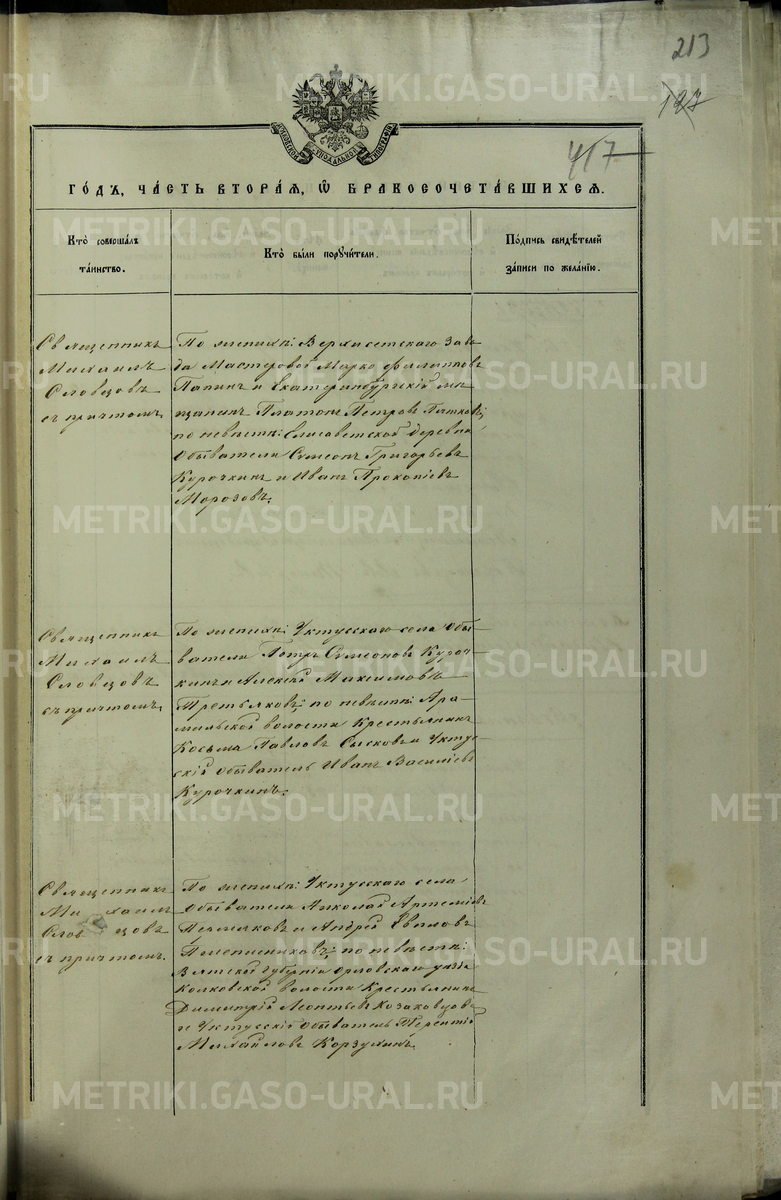 213
127
417
METRIKI.GASO-URAL.RU
МОСКОВСКОЙ СѴНОДАЛЬНОЙ ТИПОГРАФІИ
ГО́ДЪ, ЧА́СТЬ ВТОРА́Ѧ, Ѽ БРАКОСОЧЕТА́ВШИХСѦ.
Кто̀ соверша́лъ
та́инство.
Кто̀ бы́ли порꙋчи́тели.
По́дпись свидѣ́телей
за́писи по жела́нїю.
Священникъ
Михаилъ
Словцовъ
съ причтомъ.
По женихѣ: Верхисетскаго заво
да Мастеровой Марко Филипповъ
Папинъ и Екатеринбургскій мѣ
щанинъ Платонъ Петровъ Пятковъ;
по невѣстѣ: Елисаветской деревни
Обыватели Сумеонъ Григорьевъ
Курочкинъ и Иванъ Прокопіевъ
Морозовъ.
Священникъ
Михаилъ
Словцовъ
съ причтомъ.
По женихѣ: Уктусскаго села Обы-
ватели Петръ Сумеоновъ Куроч-
кинъ и Алексій Максимовъ
Третьяковъ; по невѣстѣ: Ара-
мильской волости Крестьянинъ
Косьма Павловъ Сысковъ и Уктус-
скій обыватель Иванъ Василіевъ
Курочкинъ.
Священникъ
Михаилъ
Словцовъ
съ причтомъ.
По женихѣ: Уктусскаго села
Обыватели Николай Артеміевъ
Пермяковъ и Андрей Ивановъ
по невѣстѣ:
Вятской губерніи Орловскаго уѣзда
Колковской волости Крестьянинъ
Димитрій Леонтьевъ Козаковцовъ
и Уктусскій Обыватель Терентій
Михайловъ Корзухинъ.